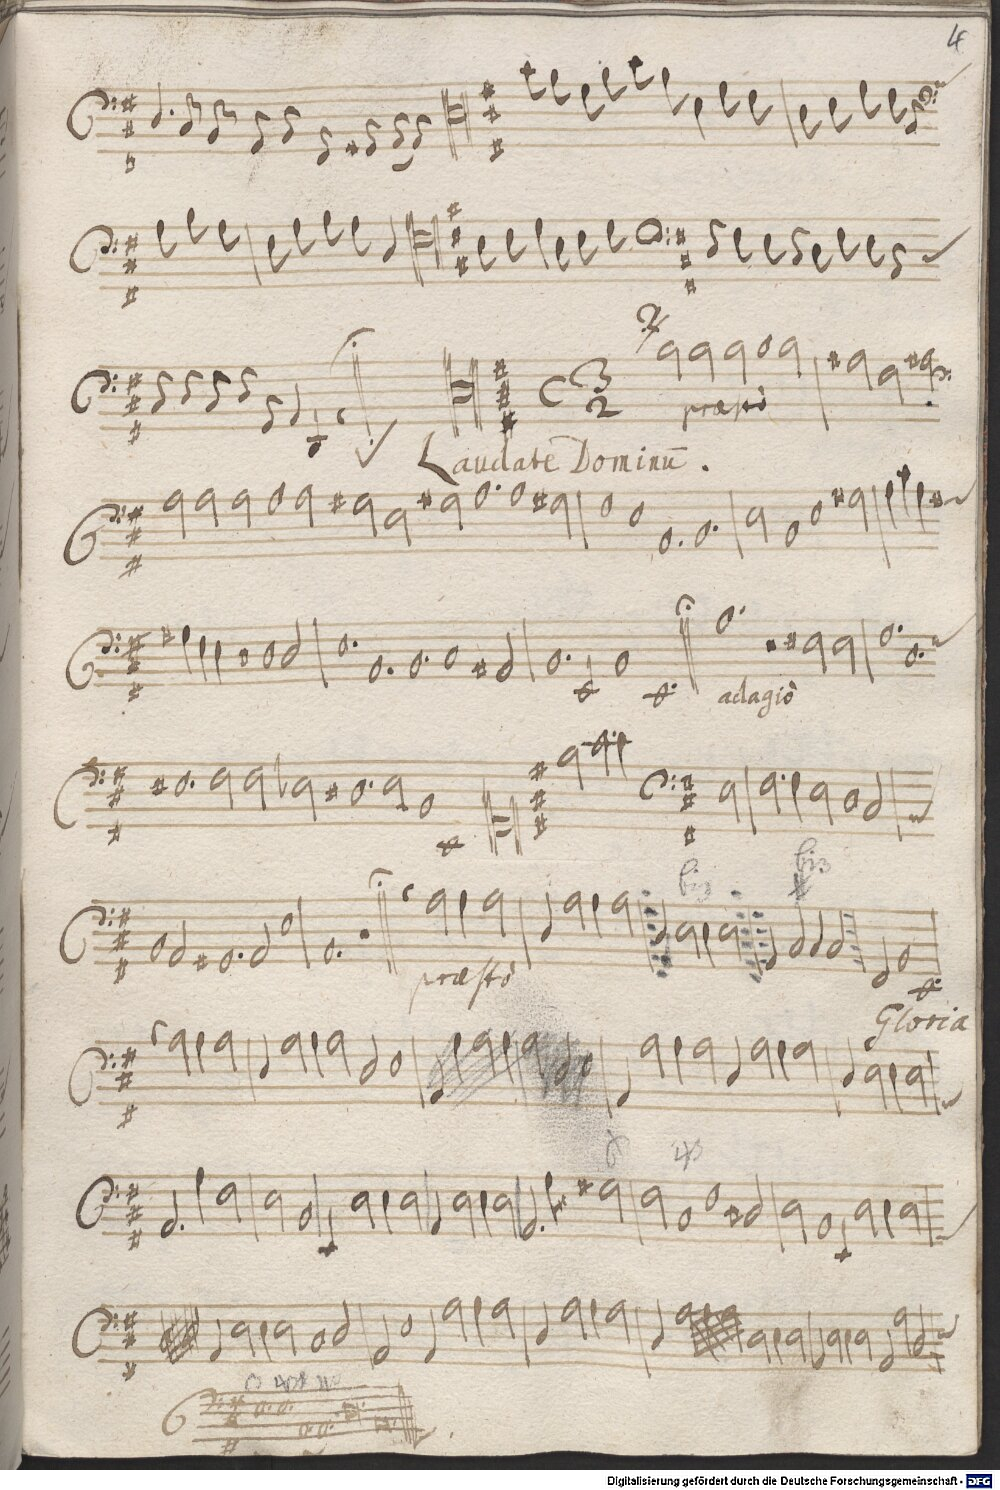 4
præstò
Laudate Dominū.
adagiò
bis bis
præstò
Gloria
Digitalisierung gefördert durch die Deutsche Forschungsgemeinschaft - DFG